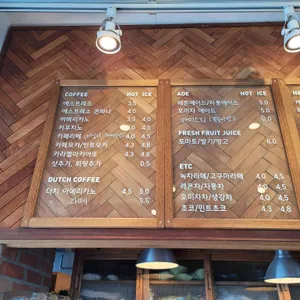 COFFEE HOT ICE
에스프레소 3.5
에스프레소 콘파나 4.0
아메리카노 3.5 4.0
카푸치노 4.0 4.5
카페라떼 4.0 4.5
카페모카/민트모카 4.3 4.8
카라멜마끼아또 4.3 4.8
샷추가, 휘핑추가 0.5
DUTCH COFFEE
더치 아메리카노 4.5 5.0
라떼 5.5
ADE HOT ICE
레몬에이드/자몽에이드 5.0
오미자 에이드 5.0
FRESH FRUIT JUICE
토마토/딸기/망고 6.0
ETC
녹차라떼/고구마라떼 4.0 4.5
레몬차/자몽차 4.0 4.5
오미자차/생강차 4.0 4.5
초코/민트초코 4.3 4.8